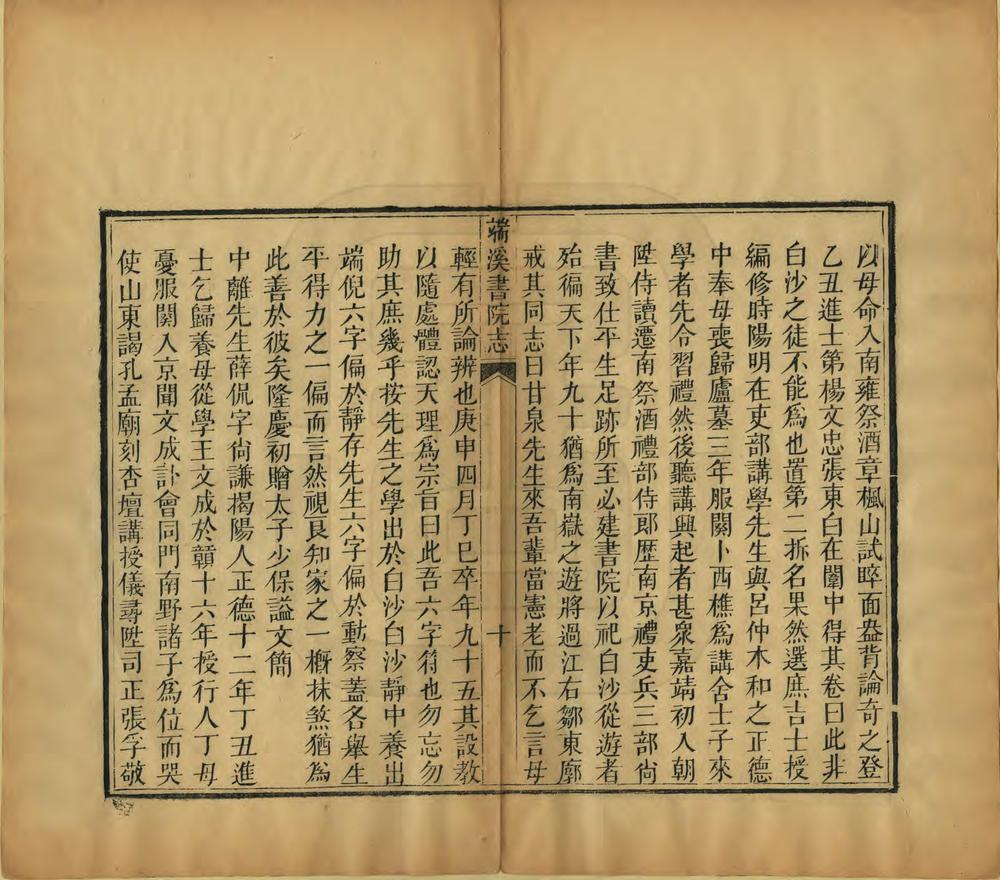 以母命入南雍祭酒章楓山試睟面盎背論奇之登
乙丑進士第楊文忠張東白在闈中得其卷曰此非
白沙之徒不能為也置第二拆名果然選庶吉士授
編修時陽明在吏部講學先生與呂仲木和之正德
中奉母喪歸廬墓三年服闋卜西樵為講舍士子來
學者先令習禮然後聽講興起者甚衆嘉靖初入朝
陞侍讀遷南祭酒禮部侍郎歷南京禮吏兵三部尙
書致仕平生足跡所至必建書院以祀白沙從遊者
殆徧天下年九十猶為南嶽之遊將過江右鄒東廓
戒其同志曰甘泉先生來吾輩當憲老而不乞言毋
端溪書院志
十
輕有所論辨也庚申四月丁巳卒年九十五其設教
以隨處體認天理為宗旨曰此吾六字符也勿忘勿
助其庶幾乎按先生之學出於白沙白沙靜中養出
端倪六字偏於靜存先生六字偏於動察蓋各舉生
平得力之一偏而言然視良知家之一槪抹煞猶為
此善於彼矣隆慶初贈太子少保謚文簡
中離先生薛侃字尙謙揭陽人正德十二年丁丑進
士乞歸養母從學王文成於贛十六年授行人丁母
憂服闋入京聞文成訃會同門南野諸子為位而哭
使山東謁孔孟廟刻杏壇講授儀尋陞司正張孚敬